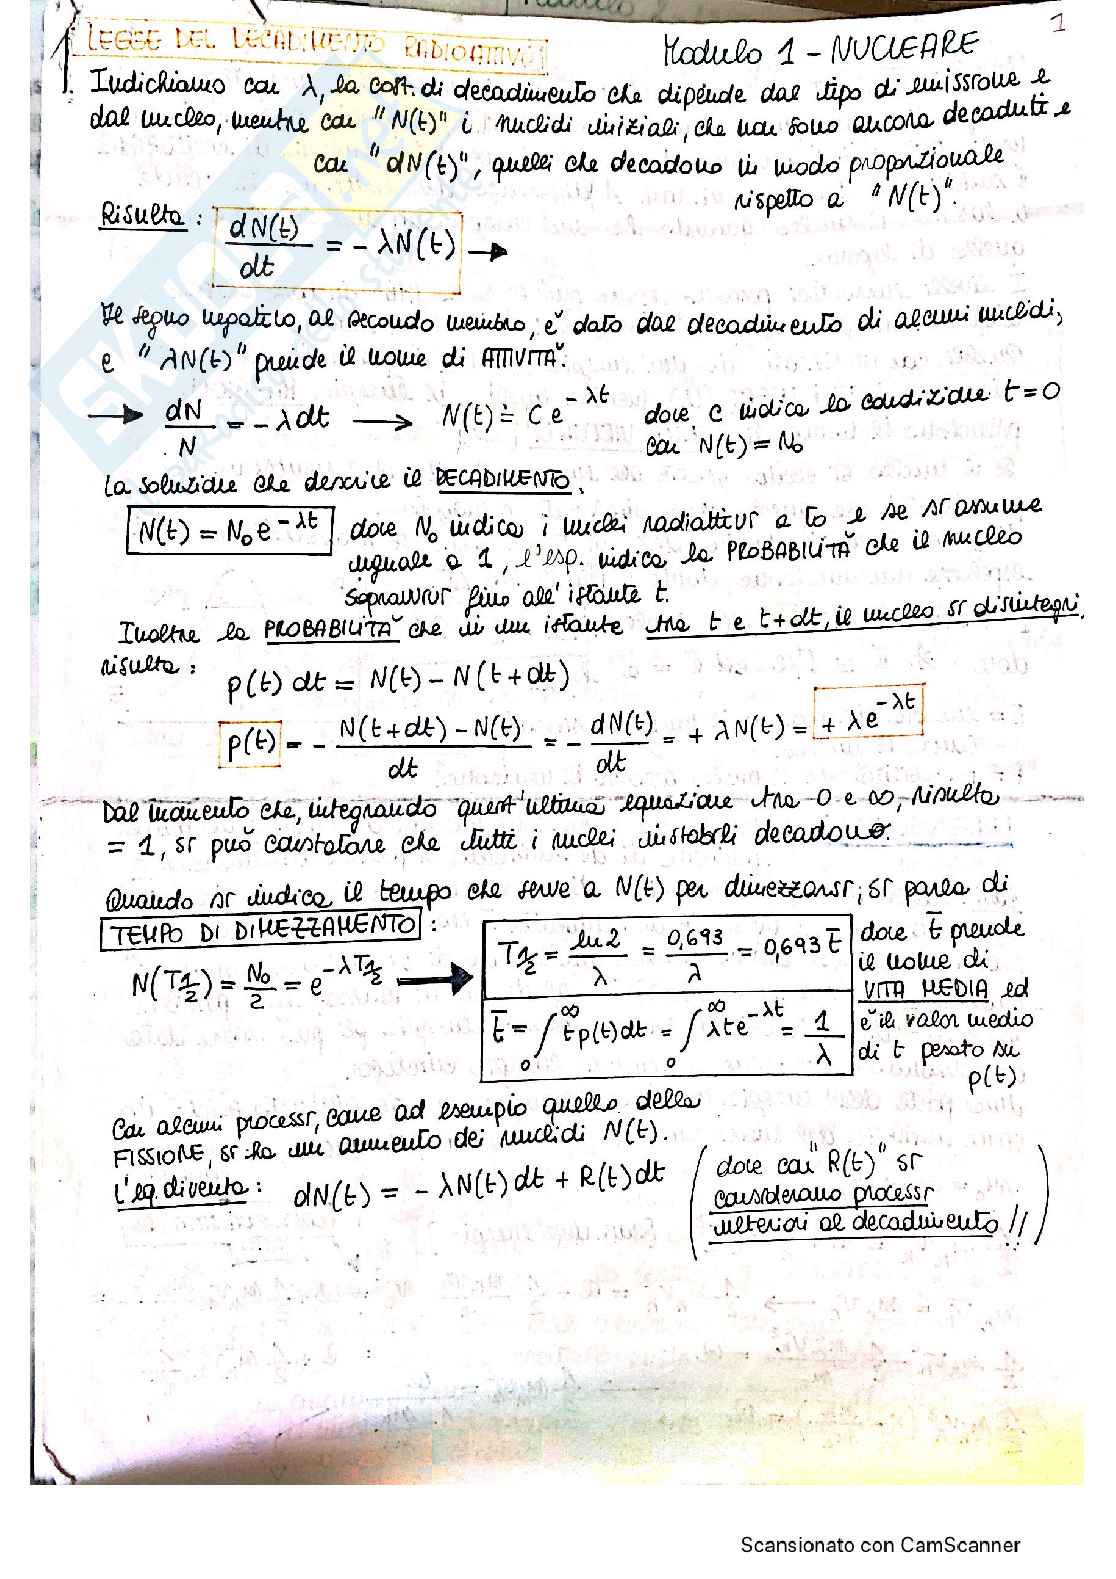 1
LEGGE DEL DECADIMENTO RADIOATTIVO
Modulo 1 - NUCLEARE
1. Indichiamo con λ, la cost. di decadimento che dipende dal tipo di emissione e
dal nucleo, mentre con "N(t)" i nuclidi iniziali, che non sono ancora decaduti e
con "dN(t)", quelli che decadono in modo proporzionale
rispetto a "N(t)".
Risulta: dN(t)/dt = - λN(t) →
Il segno negativo, al secondo membro, è dato dal decadimento di alcuni nuclidi,
e "λN(t)" prende il nome di ATTIVITÀ.
→ dN/N = - λdt → N(t) = C e^-λt dove C indica la condizione t=0
con N(t) = N₀
La soluzione che descrive il DECADIMENTO.
N(t) = N₀e^-λt dove N₀ indica i nuclei radiattivi a t₀ e se si assume
uguale a 1, l'esp. indica la PROBABILITÀ che il nucleo
sopravviv fino all'istante t.
Inoltre la PROBABILITÀ che in un istante tra t e t+dt, il nucleo si disintegri,
risulta:
p(t) dt = N(t) - N(t+dt)
p(t) = - N(t+dt) - N(t)/dt = - dN(t)/dt = + λN(t) = + λe^-λt
Dal momento che, integrando quest'ultima equazione tra 0 e ∞, risulta
= 1, si può constatare che tutti i nuclei instabili decadono.
Quando si indica il tempo che serve a N(t) per dimezzarsi, si parla di
TEMPO DI DIMEZZAMENTO:
N(T½) = N₀/2 = e^-λT½ → T½ = ln2/λ = 0,693/λ = 0,693 t̄
t̄ = ∫₀^∞ t p(t)dt = ∫₀^∞ λte^-λt = 1/λ
dove t̄ prende
il nome di
VITA MEDIA, ed
è il valor medio
di t pesato su
p(t)
Con alcuni processi, come ad esempio quello della
FISSIONE, si ha un aumento dei nuclidi N(t).
L'eq. diventa: dN(t) = - λN(t)dt + R(t)dt
(dove con "R(t)" si
considerano processi
ulteriori al decadimento!!)
Scansionato con CamScanner